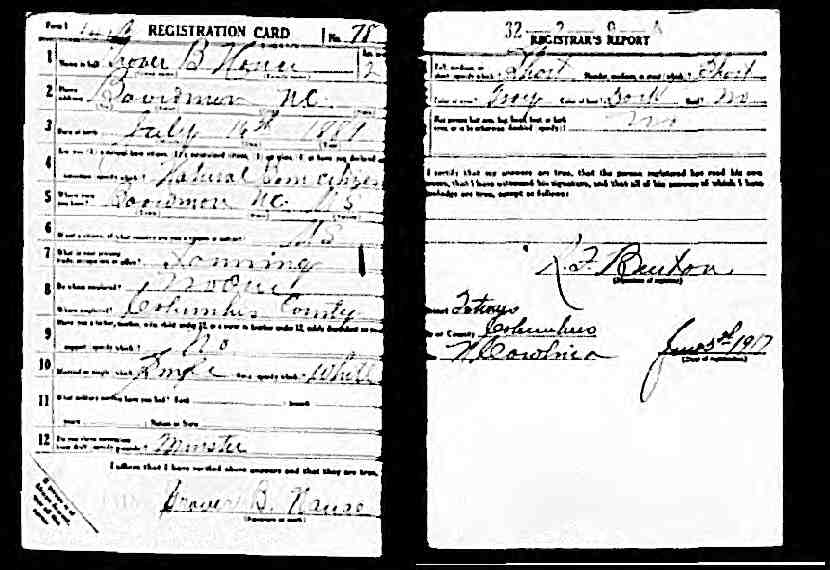 Form 1 REGISTRATION CARD No. 78
1 Name in full Grover B Nance Age in yrs
2 Home address Boardman NC
3 Date of birth July 14th 1889
4 Are you (1) a natural born citizen, (2) a naturalized citizen, (3) an alien, (4) or have you declared your
intention specify which? Natural Born citizen
5 Where were you born? Boardman NC US
6 If not a citizen, of what country are you a citizen or subject? US
7 What is your present trade, occupation or office? Farming
8 By whom employed?
Where employed? Columbus County
9 Have you a father, mother, wife, child under 12, or a sister or brother under 12, solely dependent on you for
support specify which? No
10 Married or single which? Single Race specify which? White
11 What military service have you had? Rank branch
years Nation or State
12 Do you claim exemption from draft specify grounds? Minister
I affirm that I have verified above answers and that they are true.
Grover B. Nance
(Signature or mark)
32
REGISTRAR'S REPORT
Tall, medium, or short specify which? Short Slender, medium, or stout which? Short
Color of eyes? Gray Color of hair? Dark Bald? No
Has person lost arm, leg, hand, foot, or both
eyes, or is he otherwise disabled specify? No
I certify that my answers are true, that the person registered has read his own
answers, that I have witnessed his signature, and that all of his answers of which I have
knowledge are true, except as follows:
(Signature of registrar)
Precinct Tatums
City or County Columbus
State N. Carolina June 5th 1917
(Date of registration)